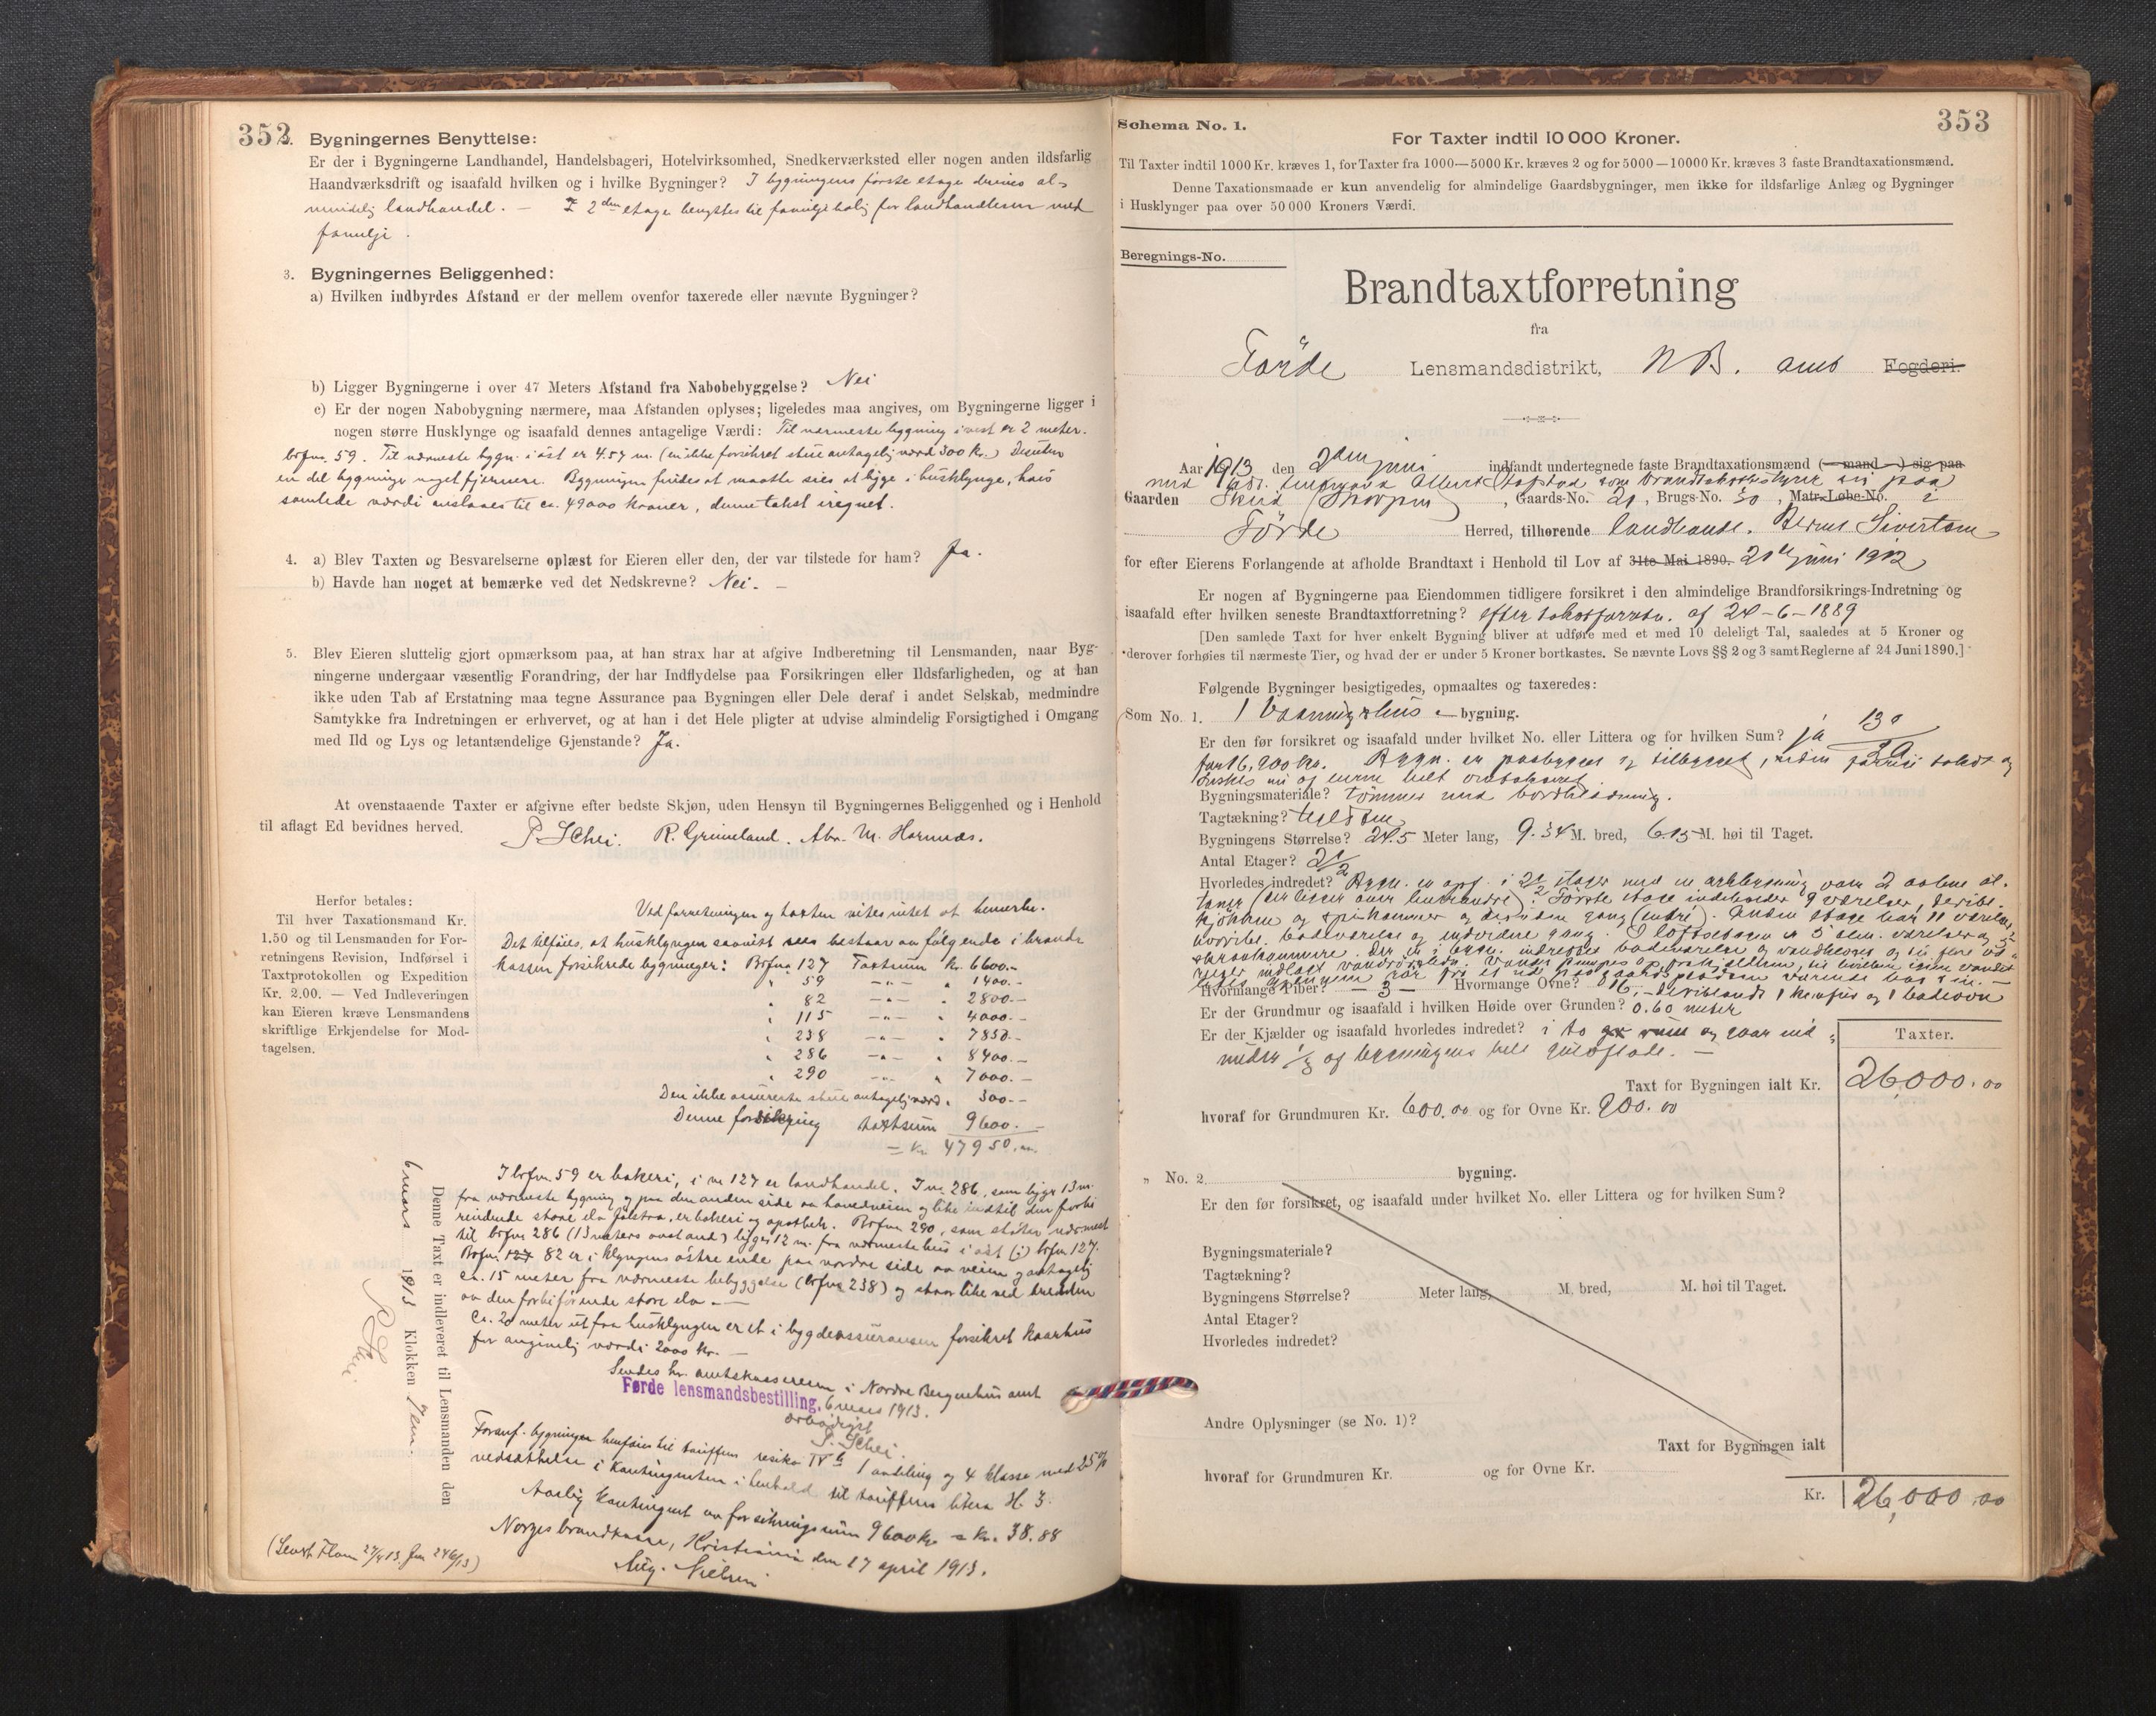 352
2. Bygningernes Benyttelse:
Er der i Bygningerne Landhandel, Handelsbageri, Hotelvirksomhed, Snedkerværksted eller nogen anden ildsfarlig
Haandværksdrift og isaafald hvilken og i hvilke Bygninger? I bygningens første etage drives al-
mindelig landhandel. — I 2den etage benyttes til familjebolig for landhandleren med
familje.
3. Bygningernes Beliggenhed:
a) Hvilken indbyrdes Afstand er der mellem ovenfor taxerede eller nævnte Bygninger?
b) Ligger Bygningerne i over 47 Meters Afstand fra Nabobebyggelse? Nei
c) Er der nogen Nabobygning nærmere, maa Afstanden oplyses; ligeledes maa angives, om Bygningerne ligger i
nogen større Husklynge og isaafald dennes antagelige Værdi: Til nærmeste bygning i vest er 2 meter.
brfnr. 59. Til nærmeste bygn. i øst er 4.57 m. (en ikke forsikret stue antagelig værd 300 kr.) Desuten
en del bygninger noget fjernere. Bygningen findes at maatte sies at ligge i husklynge, hvis
samlede værdi anslaaes til ca. 49000 kroner, denne takst iregnet.
4. a) Blev Taxten og Besvarelserne oplæst for Eieren eller den, der var tilstede for ham? Ja.
b) Havde han noget at bemærke ved det Nedskrevne? Nei. —
5. Blev Eieren sluttelig gjort opmærksom paa, at han strax har at afgive Indberetning til Lensmanden, naar Byg-
ningerne undergaar væsentlig Forandring, der har Indflydelse paa Forsikringen eller Ildsfarligheden, og at han
ikke uden Tab af Erstatning maa tegne Assurance paa Bygningen eller Dele deraf i andet Selskab, medmindre
Samtykke fra Indretningen er erhvervet, og at han i det Hele pligter at udvise almindelig Forsigtighed i Omgang
med Ild og Lys og letantændelige Gjenstande? Ja.
At ovenstaaende Taxter er afgivne efter bedste Skjøn, uden Hensyn til Bygningernes Beliggenhed og i Henhold
til aflagt Ed bevidnes herved. P Schei. R. Grimeland. Abr. M. Hornnæs.
Herfor betales:
Til hver Taxationsmand Kr.
1.50 og til Lensmanden for For-
retningens Revision, Indførsel i
Taxtprotokollen og Expedition
Kr. 2,00. — Ved Indleveringen
kan Eieren kræve Lensmandens
skriftlige Erkjendelse for Mod-
tagelsen.
Ved forretningen og taxten vites intet at bemerke.
Det tilføies, at husklyngen saavidt sees bestaar av følgende i brand-
kassen forsikrede bygninger: Brfnr. 127 Taxtsum kr. 6600.—
" 59 —"— " 1400.—
" 82 —"— " 2800.—
" 115 —"— " 4000.—
" 238 —"— " 7850.—
" 286 —"— " 8400.—
" 290 —"— " 7000.—
Den ikke assurerte stue antagelig værd. 300.—
Denne forsikring taxtsum 9600.—
= kr. 47950.
I brfnr. 59 er bakeri, i nr 127 er landhandel. I nr. 286, som ligger 13 m.
fra nærmeste bygning og paa den anden side av hovedveien og like indtil den forbi
rindende store elv Jølstra, er bakeri og apothek. Brfnr 290, som støter nærmest
til brfnr 286 (13 meters avstand) ligger 12 m. fra nærmeste hus i øst (:) brfnr 127.
Brfnr. 127 82 er i klyngens østre ende paa nordre side av veien og antagelig
ca. 15 meter fra nærmeste bebyggelse (brfnr 238) og staar like ved bredden
av den forbiførende store elv. —
Ca. 20 meter ut fra husklyngen er et i bygdeassurancen forsikret kaarhus
for angivelig værdi 2000 kr. —
Sendes hr. amtskassereren i Nordre Bergenhus amt
Førde lensmandsbestilling, 6 mars 1913.
ærbødigst
P. Schei.
Foranf. bygninger henføres til tariffens risiko IV b 1 avdeling og 4 klasse med 25%
nedsættelse i kontingenten i henhold til tariffens litera H. 3.
Aarlig kontingent av forsikringssum 9600 kr = kr. 38.88
Norges brandkasse, Kristiania den 17 april 1913.
Aug. Nielsen
Denne Taxt er indleveret til Lensmanden den
6 mars 1913 Klokken
P Schei
353
Schema No. 1.
For Taxter indtil 10 000 Kroner.
Til Taxter indtil 1000 Kr. kræves 1, for Taxter fra 1000—5000 Kr. kræves 2 og for 5000—10000 Kr. kræves 3 faste Brandtaxationsmænd.
Denne Taxationsmaade er kun anvendelig for almindelige Gaardsbygninger, men ikke for ildsfarlige Anlæg og Bygninger
i Husklynger paa over 50 000 Kroners Værdi.
Beregnings-No.
Brandtaxtforretning
fra
Førde Lensmandsdistrikt, N B. amt Fogderi.
Aar 1913 den 2den juni indfandt undertegnede faste Brandtaxationsmænd (— mand —) sig paa
Gaarden Skeid , Gaards-No. 21, Brugs-No. 30, Matr.-Løbe-No. i
Førde Herred, tilhørende landhandl. Bernt Sivertsen
for efter Eierens Forlangende at afholde Brandtaxt i Henhold til Lov af 31te Mai 1890. 21de juni 1912
Er nogen af Bygningerne paa Eiendommen tidligere forsikret i den almindelige Brandforsikrings-Indretning og
isaafald efter hvilken seneste Brandtaxtforretning? efter takstforretn. af 24–6–1889
[Den samlede Taxt for hver enkelt Bygning bliver at udføre med et med 10 deleligt Tal, saaledes at 5 Kroner og
derover forhøies til nærmeste Tier, og hvad der er under 5 Kroner bortkastes. Se nævnte Lovs §§ 2 og 3 samt Reglerne af 24 Juni 1890.]
Følgende Bygninger besigtigedes, opmaaltes og taxeredes:
Som No. 1. 1 Vaaningshus — bygning.
Er den før forsikret og isaafald under hvilket No. eller Littera og for hvilken Sum? ja 130
for 16,900 kr. Bygn. er paabygget og tilbygget, siden forrige takst og
ønskes nu
Bygningsmateriale? tømmer med bordklædning.
Tagtækning? teglsten
Bygningens Størrelse? 24.5 Meter lang, 9.34 M. bred, 6.15 M. høi til Taget.
Antal Etager? 2 1/2
Hvorledes indredet? Bygn. er opf. i 2 1/2 etager med en arkbygning
Første etage indeholder 9 værelser, deribl.
kjøkken og spiskammer Anden etage har 11 værelser
badeværelse
Hvormange Piber? — 3 — Hvormange Ovne? 16, — deriblandt 1 komfur og 1 badeovn
Er der Grundmur og isaafald i hvilken Høide over Grunden? 0.60 meter
Er der Kjælder og isaafald hvorledes indredet? i to rum og gaar ind
under 1/3 af bygningens hele gulvflate. —
Taxter.
Taxt for Bygningen ialt Kr. 26,000.00
hvoraf for Grundmuren Kr. 600.00 og for Ovne Kr. 900.00
" No. 2 bygning.
Er den før forsikret, og isaafald under hvilket No. eller Littera og for hvilken Sum?
Bygningsmateriale?
Tagtækning?
Bygningens Størrelse? Meter lang, M. bred, M. høi til Taget.
Antal Etager?
Hvorledes indredet?
Andre Oplysninger (se No. 1)?
Taxt for Bygningen ialt
hvoraf for Grundmuren Kr. og for Ovne Kr.
Kr. 26,000.00